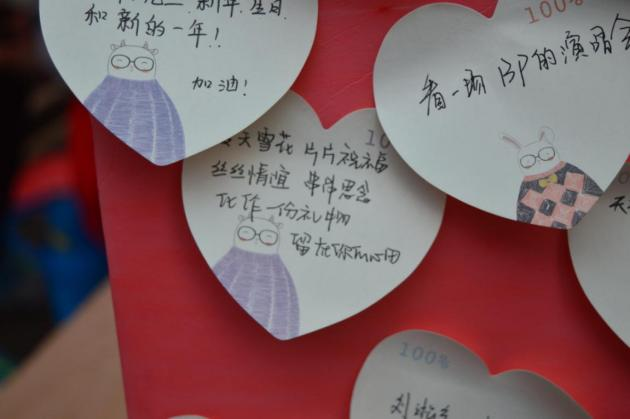 新年
和新的一年！
加油！
100%
看一场BP的演唱会
10
天雪花 片片祝福
丝丝情谊 串串思念
化作一份礼物
留在你的心田
100%
刘